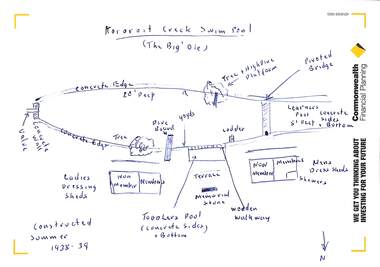 Kororoit Creek Swim Pool
(The Big Ole)
Tree + High Dive
Platform
Pivoted
Bridge
Concrete Edge
20' Deep
Learners
Pool
5' Deep
Concrete
Sides
+ Bottom
Valve
Concrete
Wall
Concrete Edge
Tree
Dive
Board
40yds
Ladder
Ladies
Dressing
Sheds
Non
Member
Members
Terrace
Memorial
Stone
Non
Member
Members
Mens
Dress Sheds
Showers
Toddlers Pool
(Concrete Sides)
+ Bottom
Wooden
Walkway
Constructed
Summer
1938-39
N
Commonwealth
Financial Planning
WE GET YOU THINKING ABOUT
INVESTING FOR YOUR FUTURE